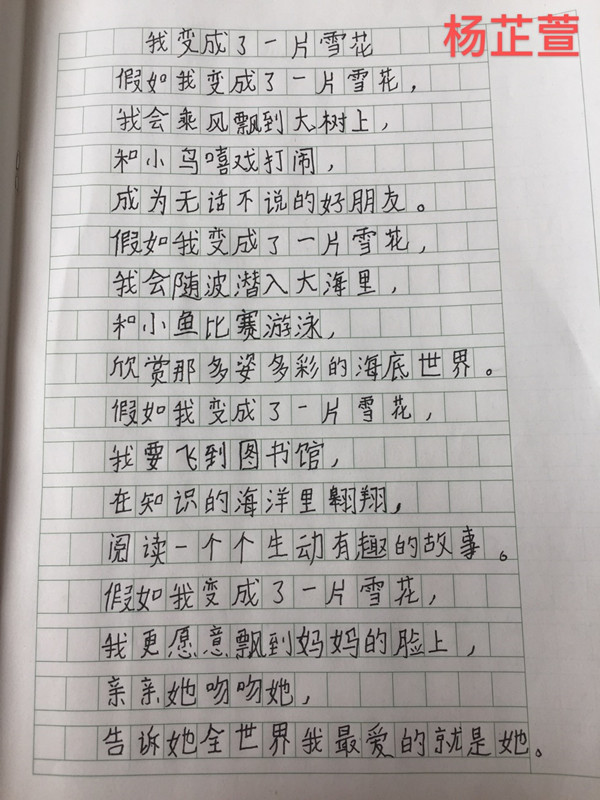 我变成了一片雪花
杨芷萱
假如我变成了一片雪花，
我会乘风飘到大树上，
和小鸟嘻戏打闹，
成为无话不说的好朋友。
假如我变成了一片雪花，
我会随波潜入大海里，
和小鱼比赛游泳，
欣赏那多姿多彩的海底世界。
假如我变成了一片雪花，
我要飞到图书馆，
在知识的海洋里翱翔，
阅读一个个生动有趣的故事。
假如我变成了一片雪花，
我更愿意飘到妈妈的脸上，
亲亲她吻吻她，
告诉她全世界我最爱的就是她。